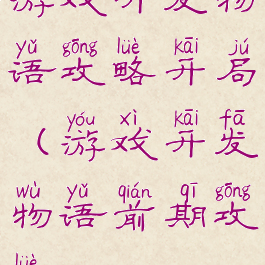 游戏开发物
yǔ gōng lüè kāi jú
语攻略开局
yóu xì kāi fā
（游戏开发
wù yǔ qián qī gōng
物语前期攻
lüè